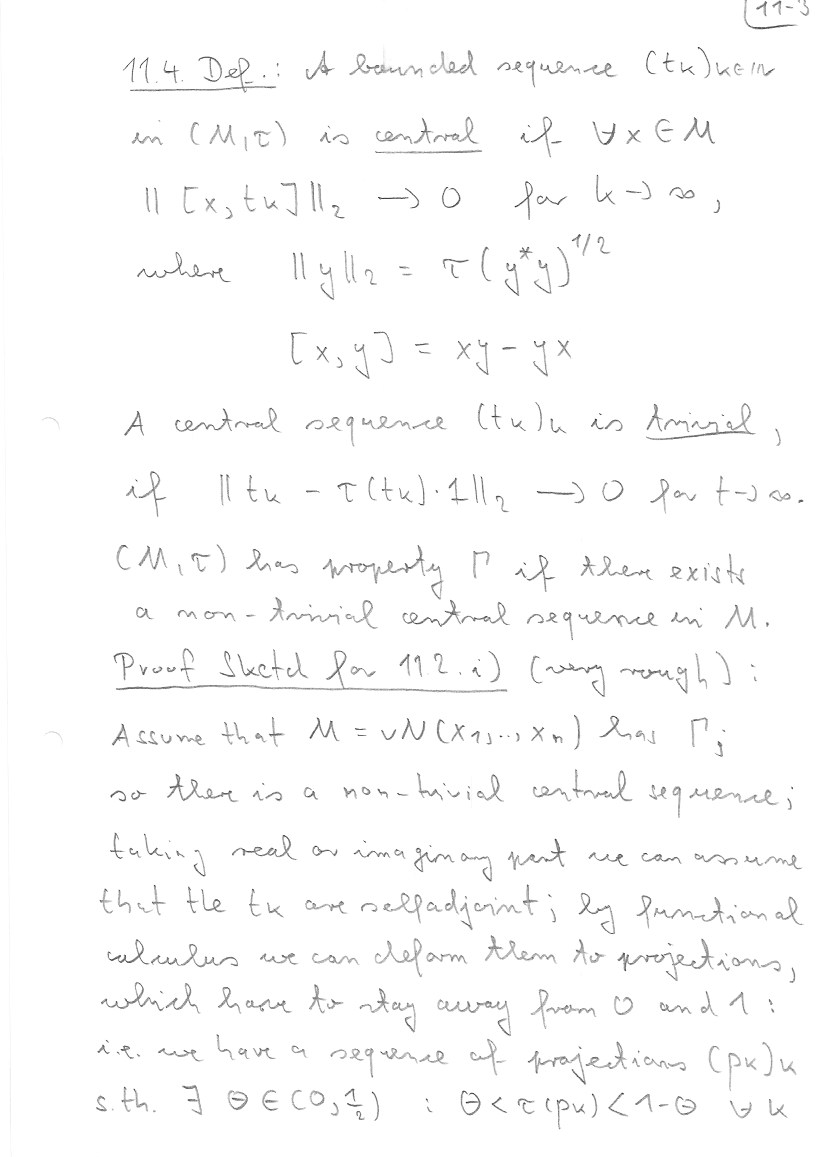 11-3
11.4. Def.: A bounded sequence (tk)k∈ℕ
in (M,τ) is central if ∀x∈M
|| [x,tk] ||₂ → 0 for k→∞,
where ||y||₂ = τ(y*y)^1/2
[x,y] = xy-yx
A central sequence (tk)k is trivial,
if ||tk - τ(tk)·1||₂ → 0 for t→∞.
(M,τ) has property Γ if there exists
a non-trivial central sequence in M.
Proof Sketch for 11.2.i) (very rough):
Assume that M = vN(x₁,..,xn) has Γ;
so there is a non-trivial central sequence;
taking real or imaginary part we can assume
that the tk are selfadjoint; by functional
calculus we can deform them to projections,
which have to stay away from 0 and 1:
i.e. we have a sequence of projections (pk)k
s.th. ∃ Θ∈(0,½) : Θ<τ(pk)<1-Θ ∀k